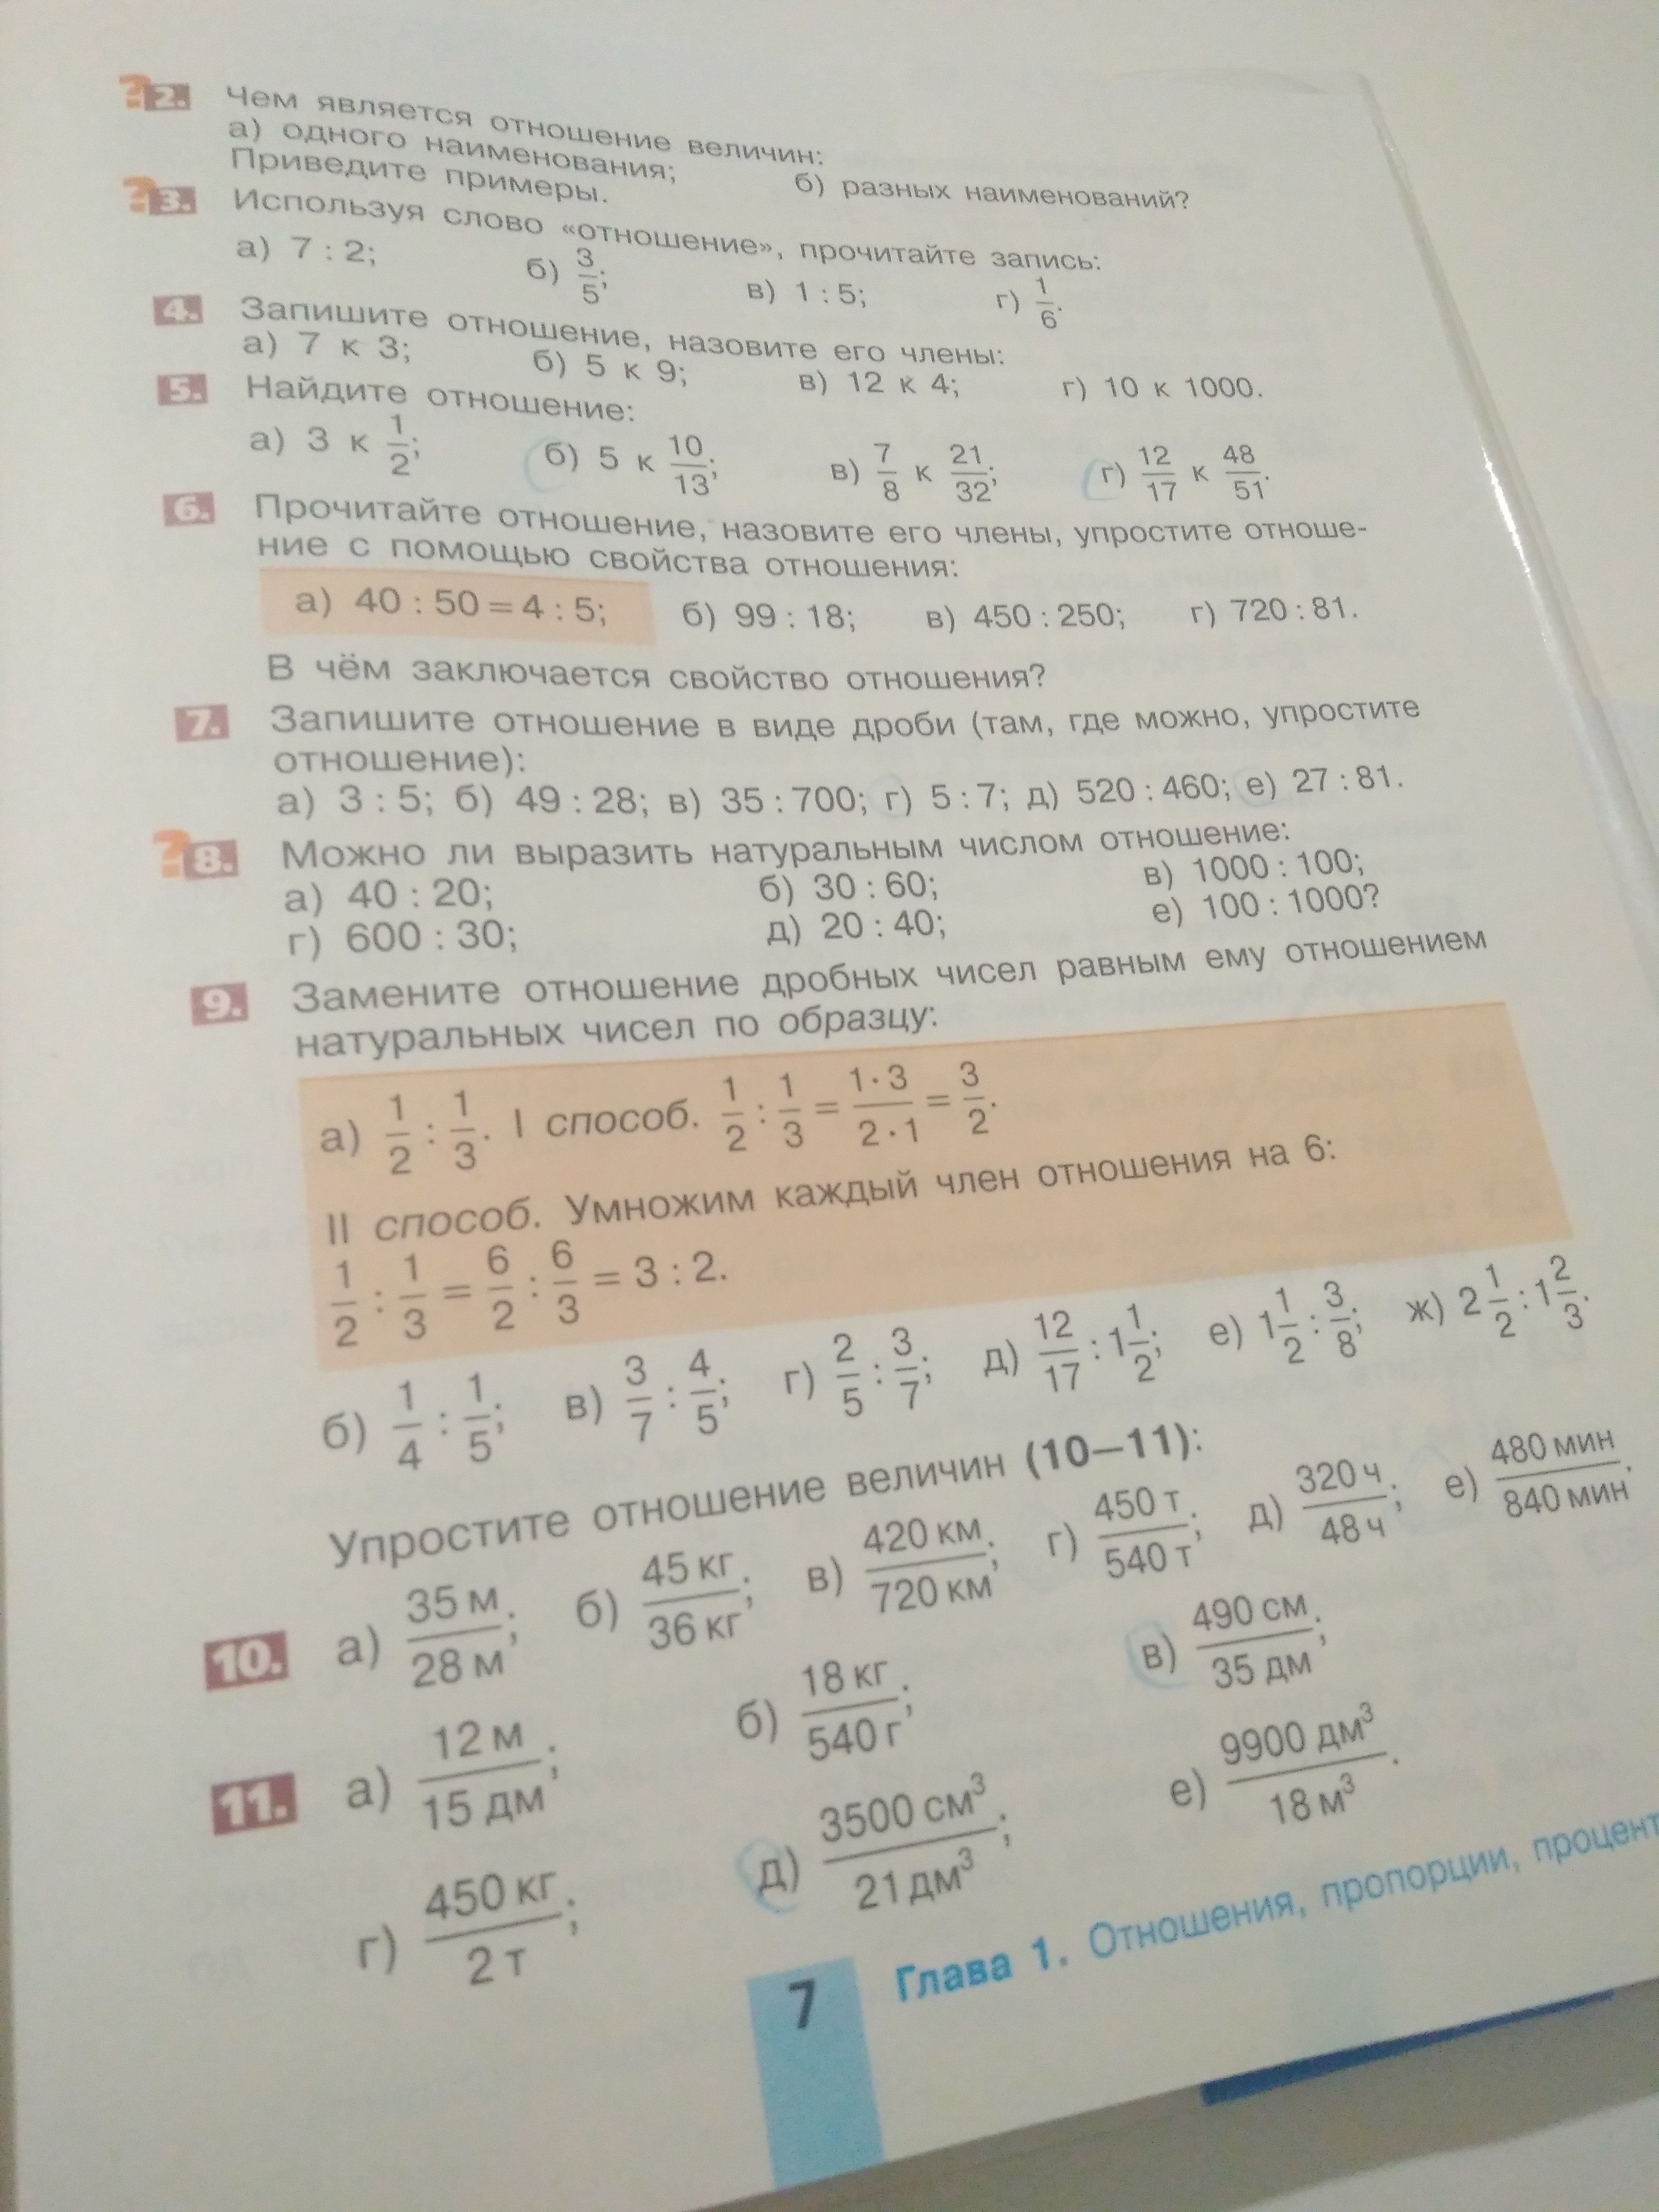 ?2. Чем является отношение величин:
а) одного наименования; б) разных наименований?
Приведите примеры.
?3. Используя слово «отношение», прочитайте запись:
а) 7 : 2; б) 3/5; в) 1 : 5; г) 1/6.
4. Запишите отношение, назовите его члены:
а) 7 к 3; б) 5 к 9; в) 12 к 4; г) 10 к 1000.
5. Найдите отношение:
а) 3 к 1/2; б) 5 к 10/13; в) 7/8 к 21/32; г) 12/17 к 48/51.
6. Прочитайте отношение, назовите его члены, упростите отноше-
ние с помощью свойства отношения:
а) 40 : 50 = 4 : 5; б) 99 : 18; в) 450 : 250; г) 720 : 81.
В чём заключается свойство отношения?
7. Запишите отношение в виде дроби (там, где можно, упростите
отношение):
а) 3 : 5; б) 49 : 28; в) 35 : 700; г) 5 : 7; д) 520 : 460; е) 27 : 81.
?8. Можно ли выразить натуральным числом отношение:
а) 40 : 20; б) 30 : 60; в) 1000 : 100;
г) 600 : 30; д) 20 : 40; е) 100 : 1000?
9. Замените отношение дробных чисел равным ему отношением
натуральных чисел по образцу:
а) 1/2 : 1/3. I способ. 1/2 : 1/3 = 1·3/2·1 = 3/2.
II способ. Умножим каждый член отношения на 6:
1/2 : 1/3 = 6/2 : 6/3 = 3 : 2.
б) 1/4 : 1/5; в) 3/7 : 4/5; г) 2/5 : 3/7; д) 12/17 : 1 1/2; е) 1 1/2 : 3/8; ж) 2 1/2 : 1 2/3.
Упростите отношение величин (10—11):
10. а) 35 м/28 м; б) 45 кг/36 кг; в) 420 км/720 км; г) 450 т/540 т; д) 320 ч/48 ч; е) 480 мин/840 мин.
11. а) 12 м/15 дм; б) 18 кг/540 г; в) 490 см/35 дм;
г) 450 кг/2 т; д) 3500 см³/21 дм³; е) 9900 дм³/18 м³.
7 Глава 1. Отношения, пропорции, процент